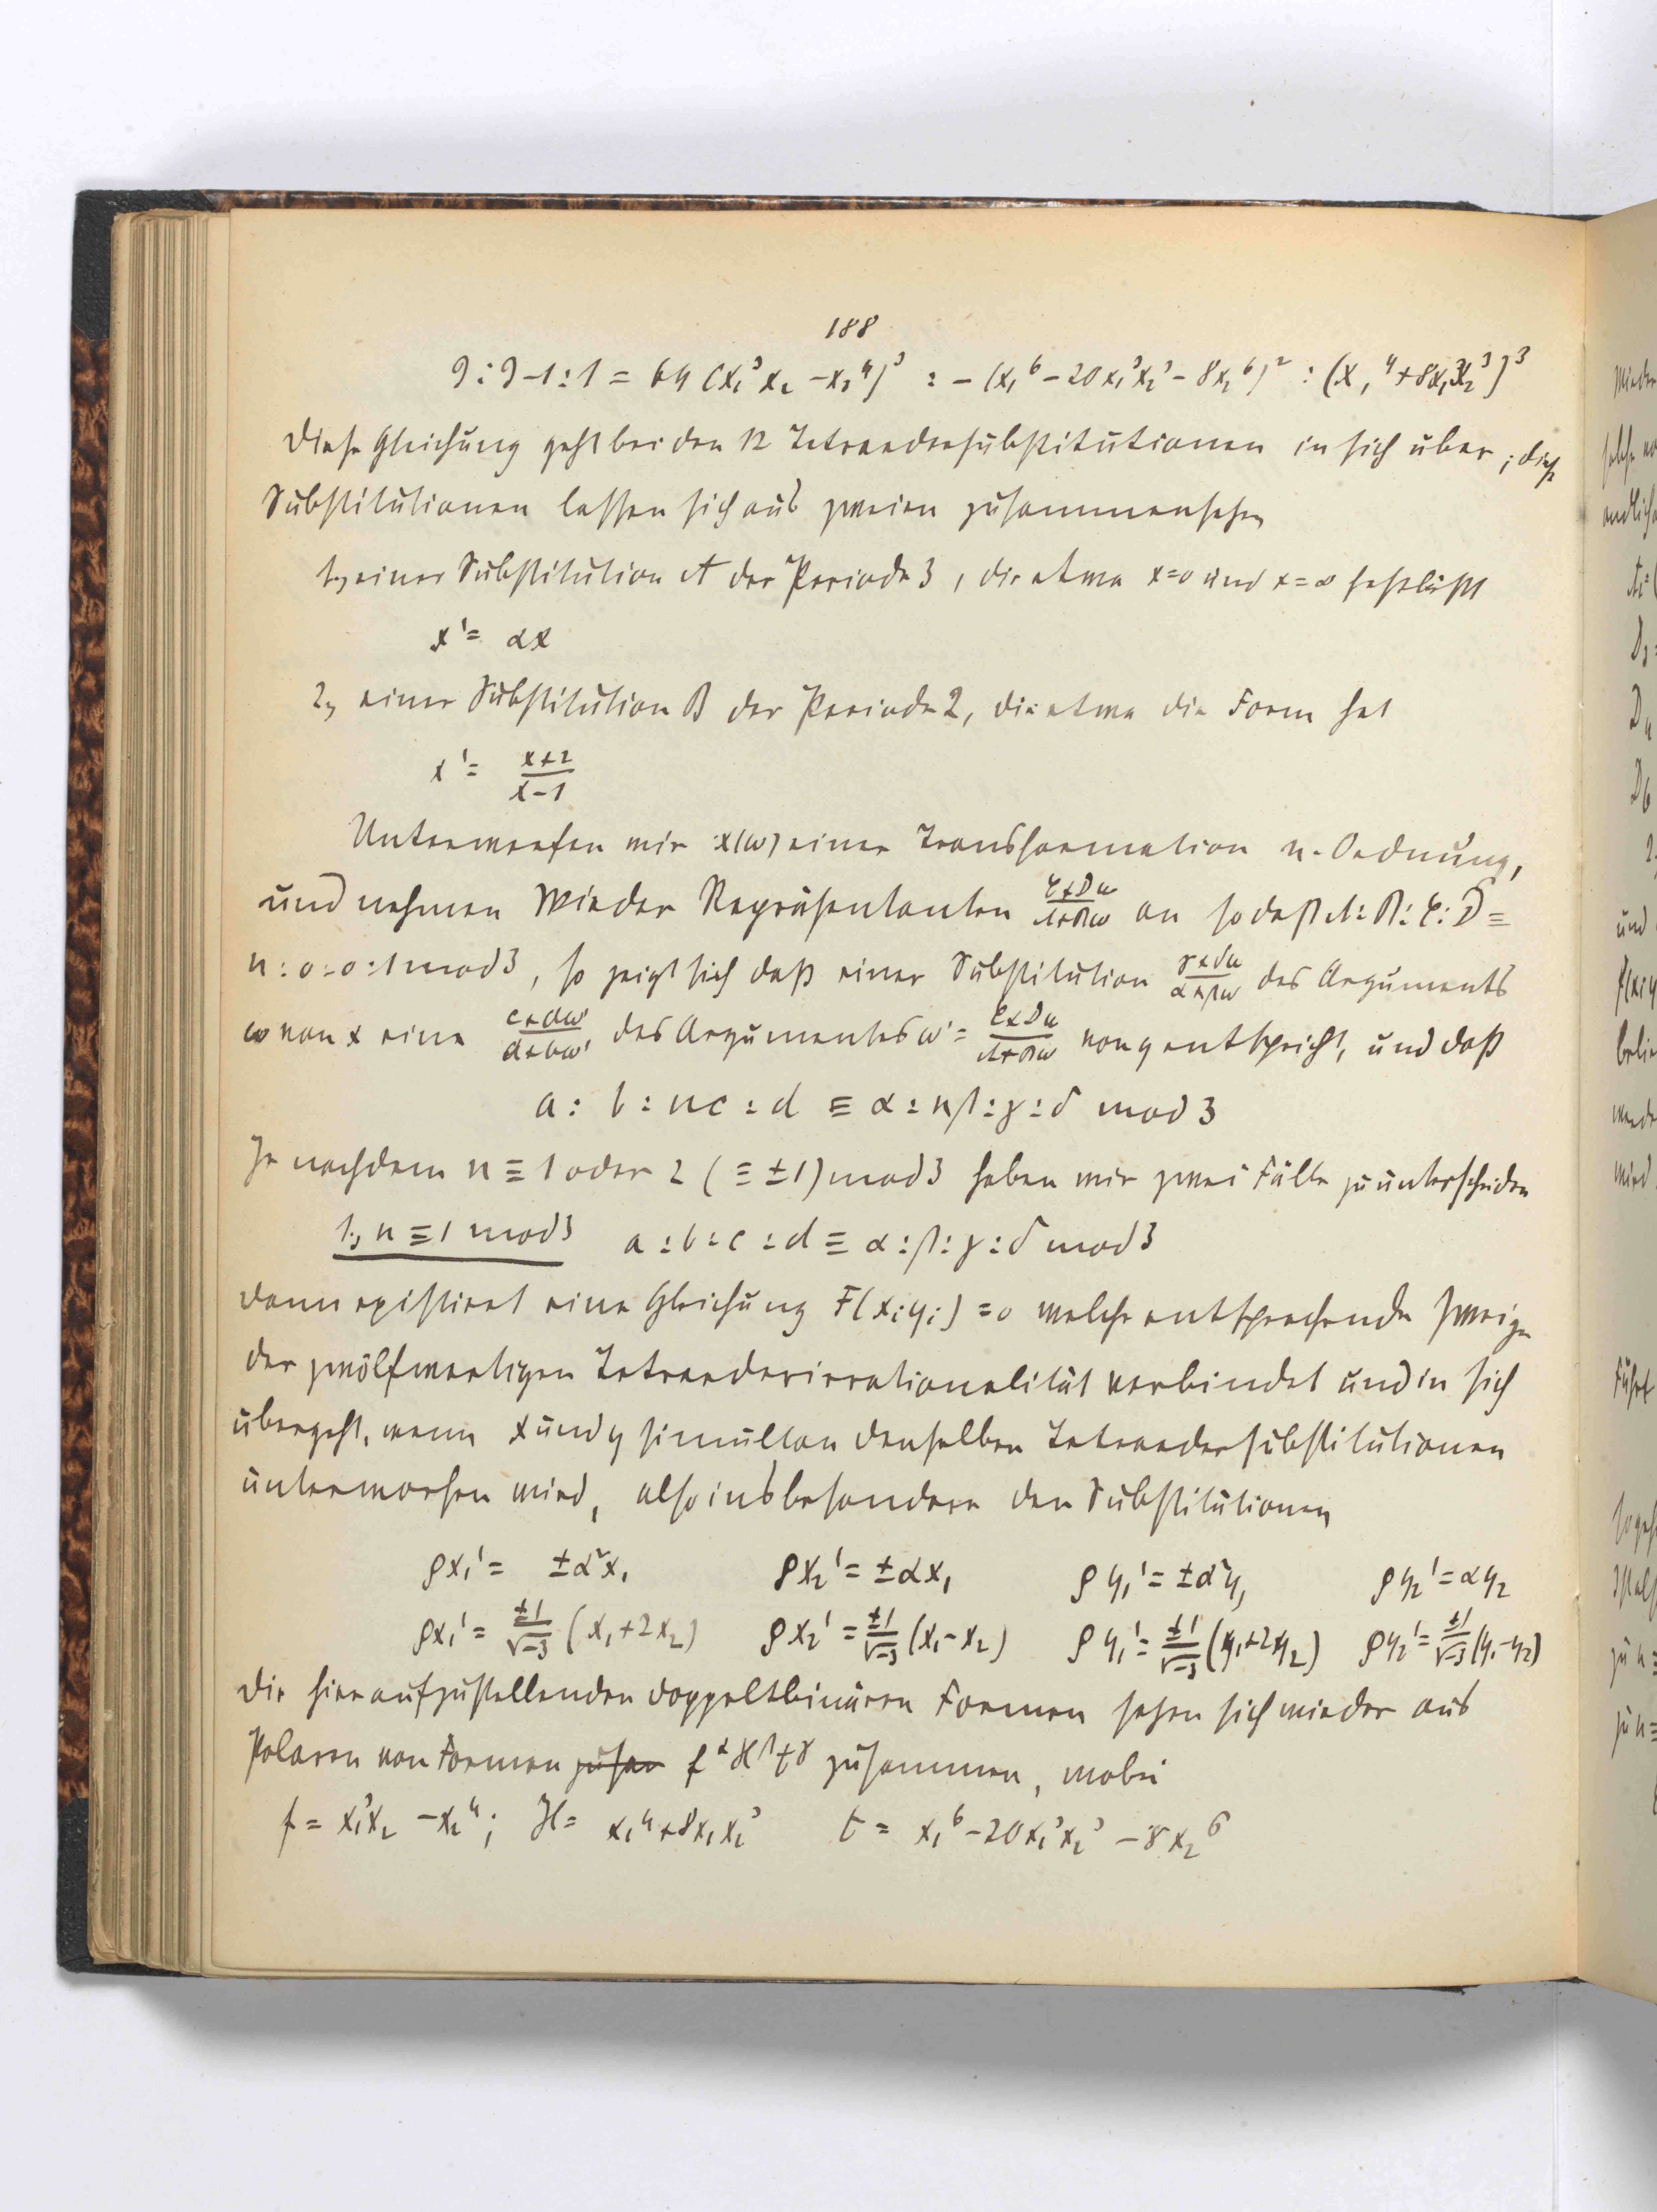 188
J : J-1 : 1 = 64 (x₁³x₂ - x₂⁴)³ : - (x₁⁶ - 20x₁³x₂³ - 8x₂⁶)² : (x₁⁴ + 8x₁x₂³)³
Diese Gleichung geht bei den 12 Tetraedersubstitutionen in sich über; diese
Substitutionen lassen sich aus zweien zusammensetzen
1, einer Substitution A der Periode 3, die etwa x=0 und x=∞ festläßt
x' = αx
2, einer Substitution B der Periode 2, die etwa die Form hat
x' = (x+2)/(x-1)
Unterwerfen wir x(ω) einer Transformation n. Ordnung,
und nehmen wieder Repräsentanten (C+Dω)/(A+Bω) an so daß A:B:C:D ≡
n:0:0:1 mod 3, so zeigt sich daß einer Substitution (γ+δω)/(α+βω) des Arguments
ω von x eine (c+dω')/(a+bω') des Argumentes ω' = (C+Dω)/(A+Bω) von y entspricht, und daß
a : b : nc : d ≡ α : nβ : γ : δ mod 3
Je nachdem n ≡ 1 oder 2 (≡ ±1) mod 3 haben wir zwei Fälle zu unterscheiden
1, n ≡ 1 mod 3 a : b : c : d ≡ α : β : γ : δ mod 3
dann existiert eine Gleichung F(xᵢyᵢ) = 0 welche entsprechende Zweige
der zwölfwertigen Tetraederirrationalität verbindet und in sich
übergeht, wenn x und y simultan denselben Tetraedersubstitutionen
unterworfen wird, also insbesondere den Substitutionen
ρx₁' = ±α²x₁ ρx₂' = ±αx₁ ρy₁' = ±α²y₁ ρy₂' = αy₂
ρx₁' = ±1/√-3 (x₁+2x₂) ρx₂' = ±1/√-3 (x₁-x₂) ρy₁' = ±1/√-3 (y₁+2y₂) ρy₂' = ±1/√-3 (y₁-y₂)
Die hier aufzustellenden doppeltbinären Formen setzen sich wieder aus
Polaren von Formen zusam f^α H^β t^γ zusammen, wobei
f = x₁³x₂ - x₂⁴; H = x₁⁴ + 8x₁x₂³ t = x₁⁶ - 20x₁³x₂³ - 8x₂⁶